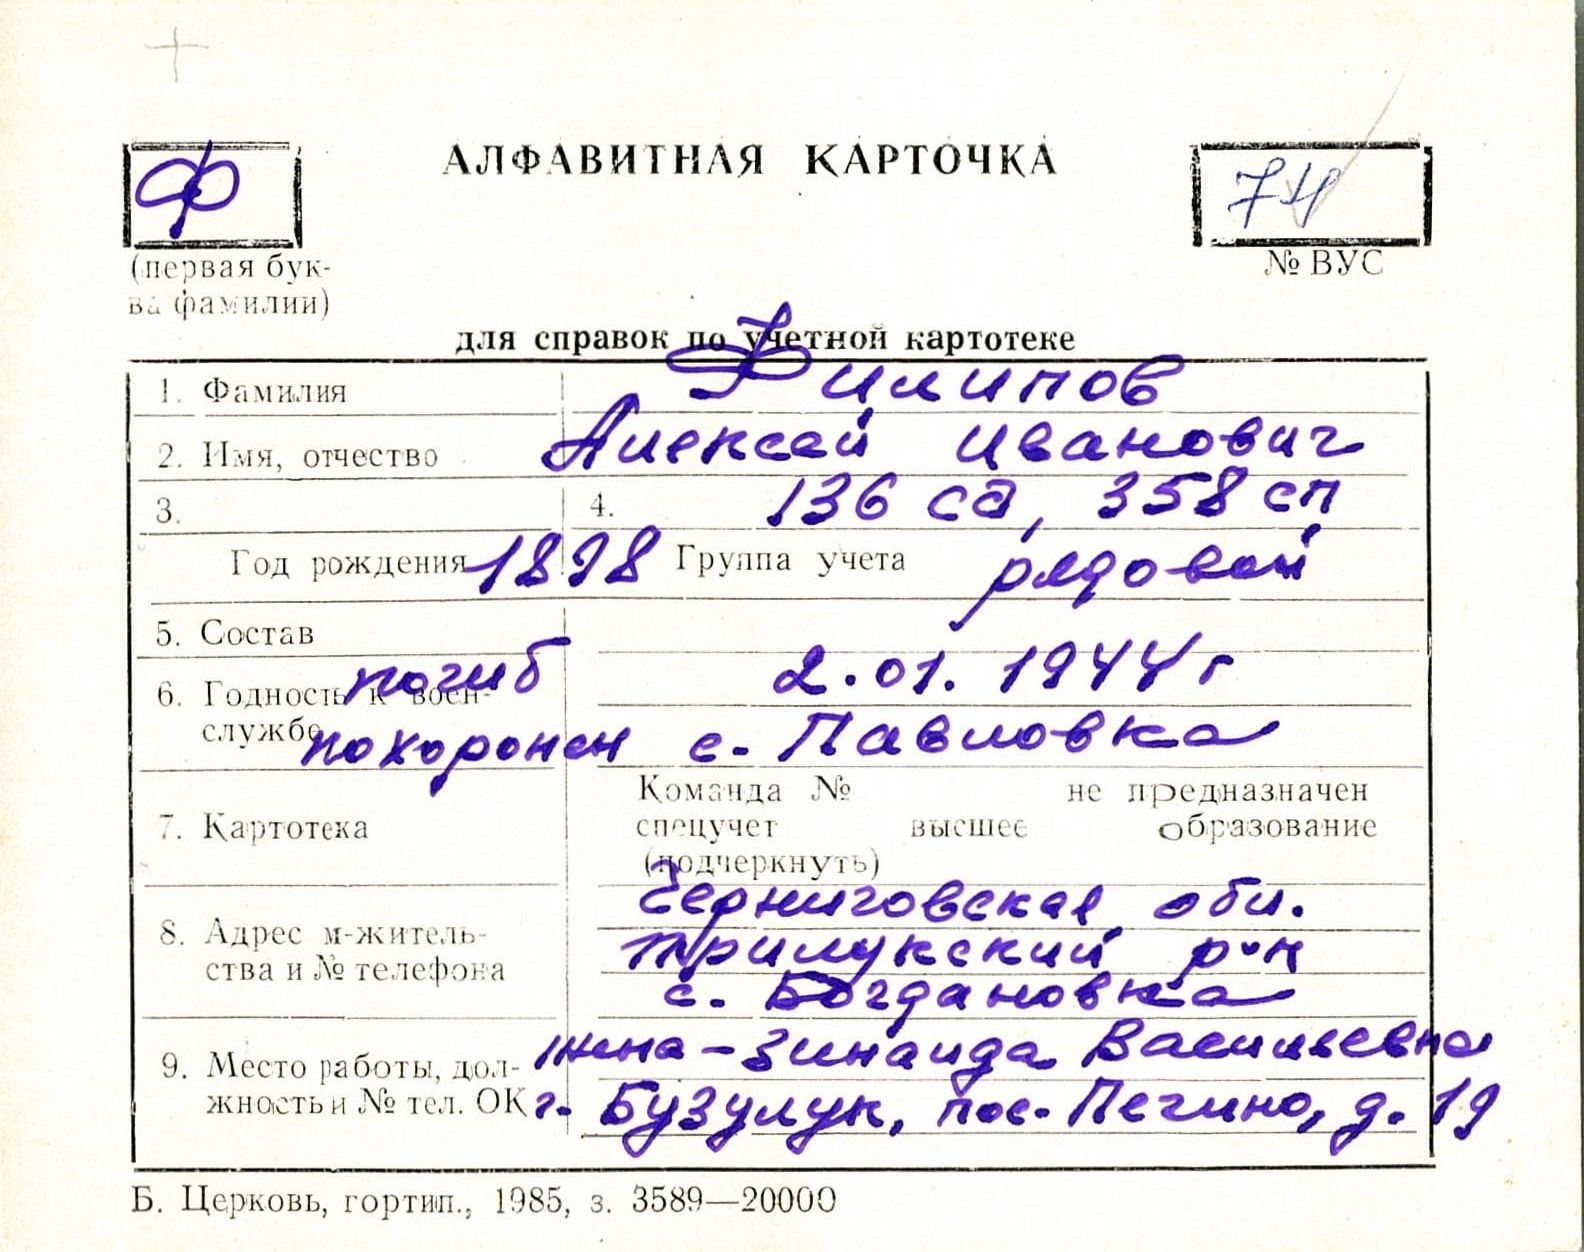 АЛФАВИТНАЯ КАРТОЧКА
Ф
74
(первая бук-
ва фамилии)
№ ВУС
для справок по учетной картотеке
1. Фамилия Филипов
2. Имя, отчество Алексей Иванович
3. 4. 136 сд, 358 сп
Год рождения 1898 Группа учета рядовой
5. Состав
погиб 2.01.1944 г
6. Годность к воен-
службе
похоронен с. Павловка
7. Картотека
Команда № не предназначен
спецучет высшее образование
(подчеркнуть)
8. Адрес м-житель-
ства и № телефона
Черниговская обл.
Прилукский р-н
с. Богдановка
9. Место работы, дол-
жность и № тел. ОК
жена - Зинаида Васильевна
г. Бузулук, пос. Пегино, д. 19
Б. Церковь, гортип., 1985, з. 3589—20000